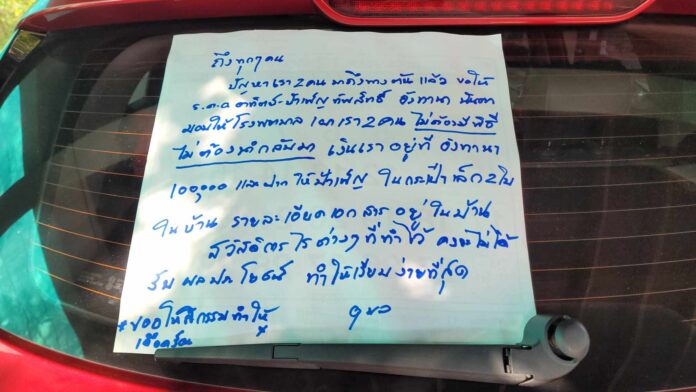 ถึงทุกๆคน
ปัญหาเรา 2 คน มาถึงทางตันแล้ว ขอให้
ร.ต.อ อาทิตย์ ป้าเพ็ญ ทัพสิทธิ์ อังคานา
มอบให้โรงพยาบาล เอาเรา 2 คน ไม่ต้องมีพิธี
ไม่ต้องนำกลับมา เงินเราอยู่ที่ อังคานา
100,000 และฝากให้ป้าเพ็ญ ในกระเป๋าเล็ก 2 ใบ
ในบ้าน รายละเอียดเอกสารอยู่ในบ้าน
สวัสดิการไรต่างๆ ที่ทำไว้ คงจะไม่ได้
รับผลประโยชน์ ทำให้เรียบง่ายที่สุด
*ขออโหสิกรรมทำให้
เดือดร้อน